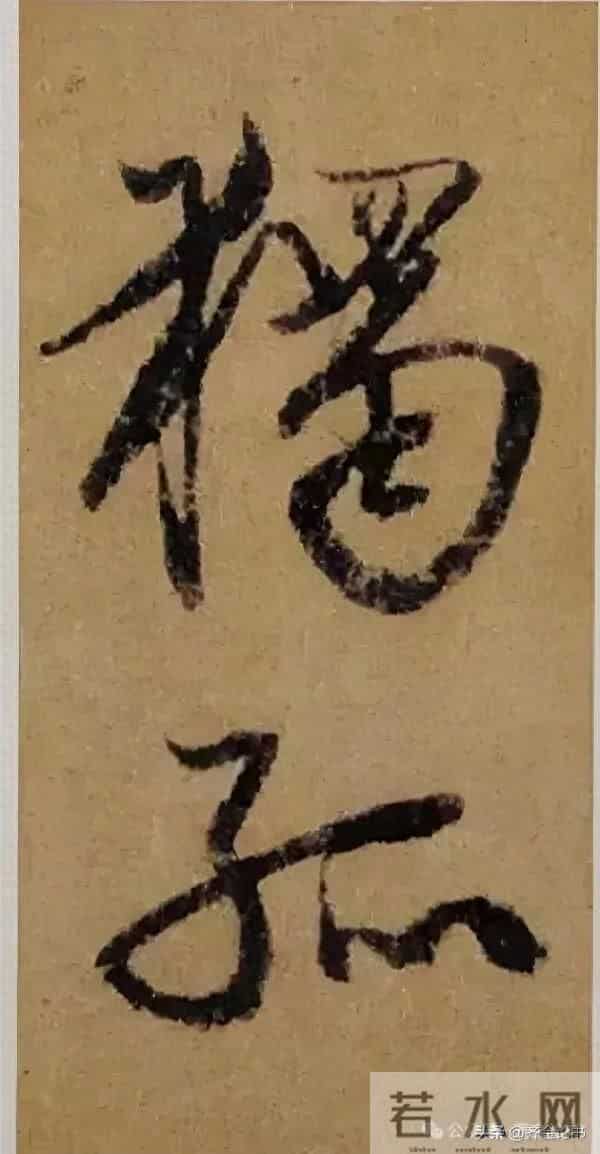 獨孤
若水网
头条